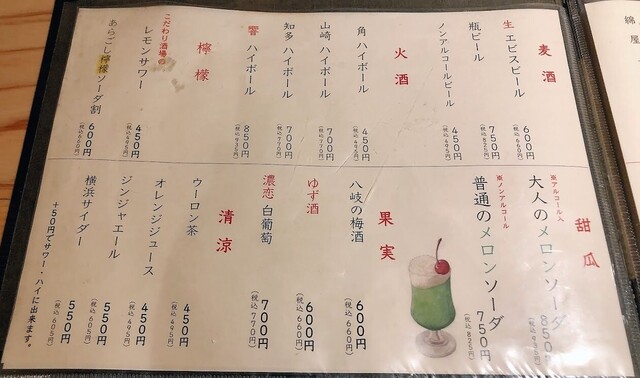 麦酒
生 ヱビスビール
600円
(税込660円)
瓶ビール
750円
(税込825円)
ノンアルコールビール
450円
(税込495円)
火酒
角 ハイボール
450円
(税込495円)
山崎 ハイボール
700円
(税込770円)
知多 ハイボール
700円
(税込770円)
響 ハイボール
850円
(税込935円)
檸檬
こだわり酒場の
レモンサワー
450円
(税込495円)
あらごし檸檬ソーダ割
600円
(税込660円)
甜瓜
※アルコール入
大人のメロンソーダ
850円
(税込935円)
※ノンアルコール
普通のメロンソーダ
750円
(税込825円)
果実
八岐の梅酒
600円
(税込660円)
ゆず酒
600円
(税込660円)
濃恋 白葡萄
700円
(税込770円)
清涼
ウーロン茶
450円
(税込495円)
オレンジジュース
450円
(税込495円)
ジンジャエール
550円
(税込605円)
横浜サイダー
550円
(税込605円)
+50円でサワー・ハイに出来ます。
綿屋